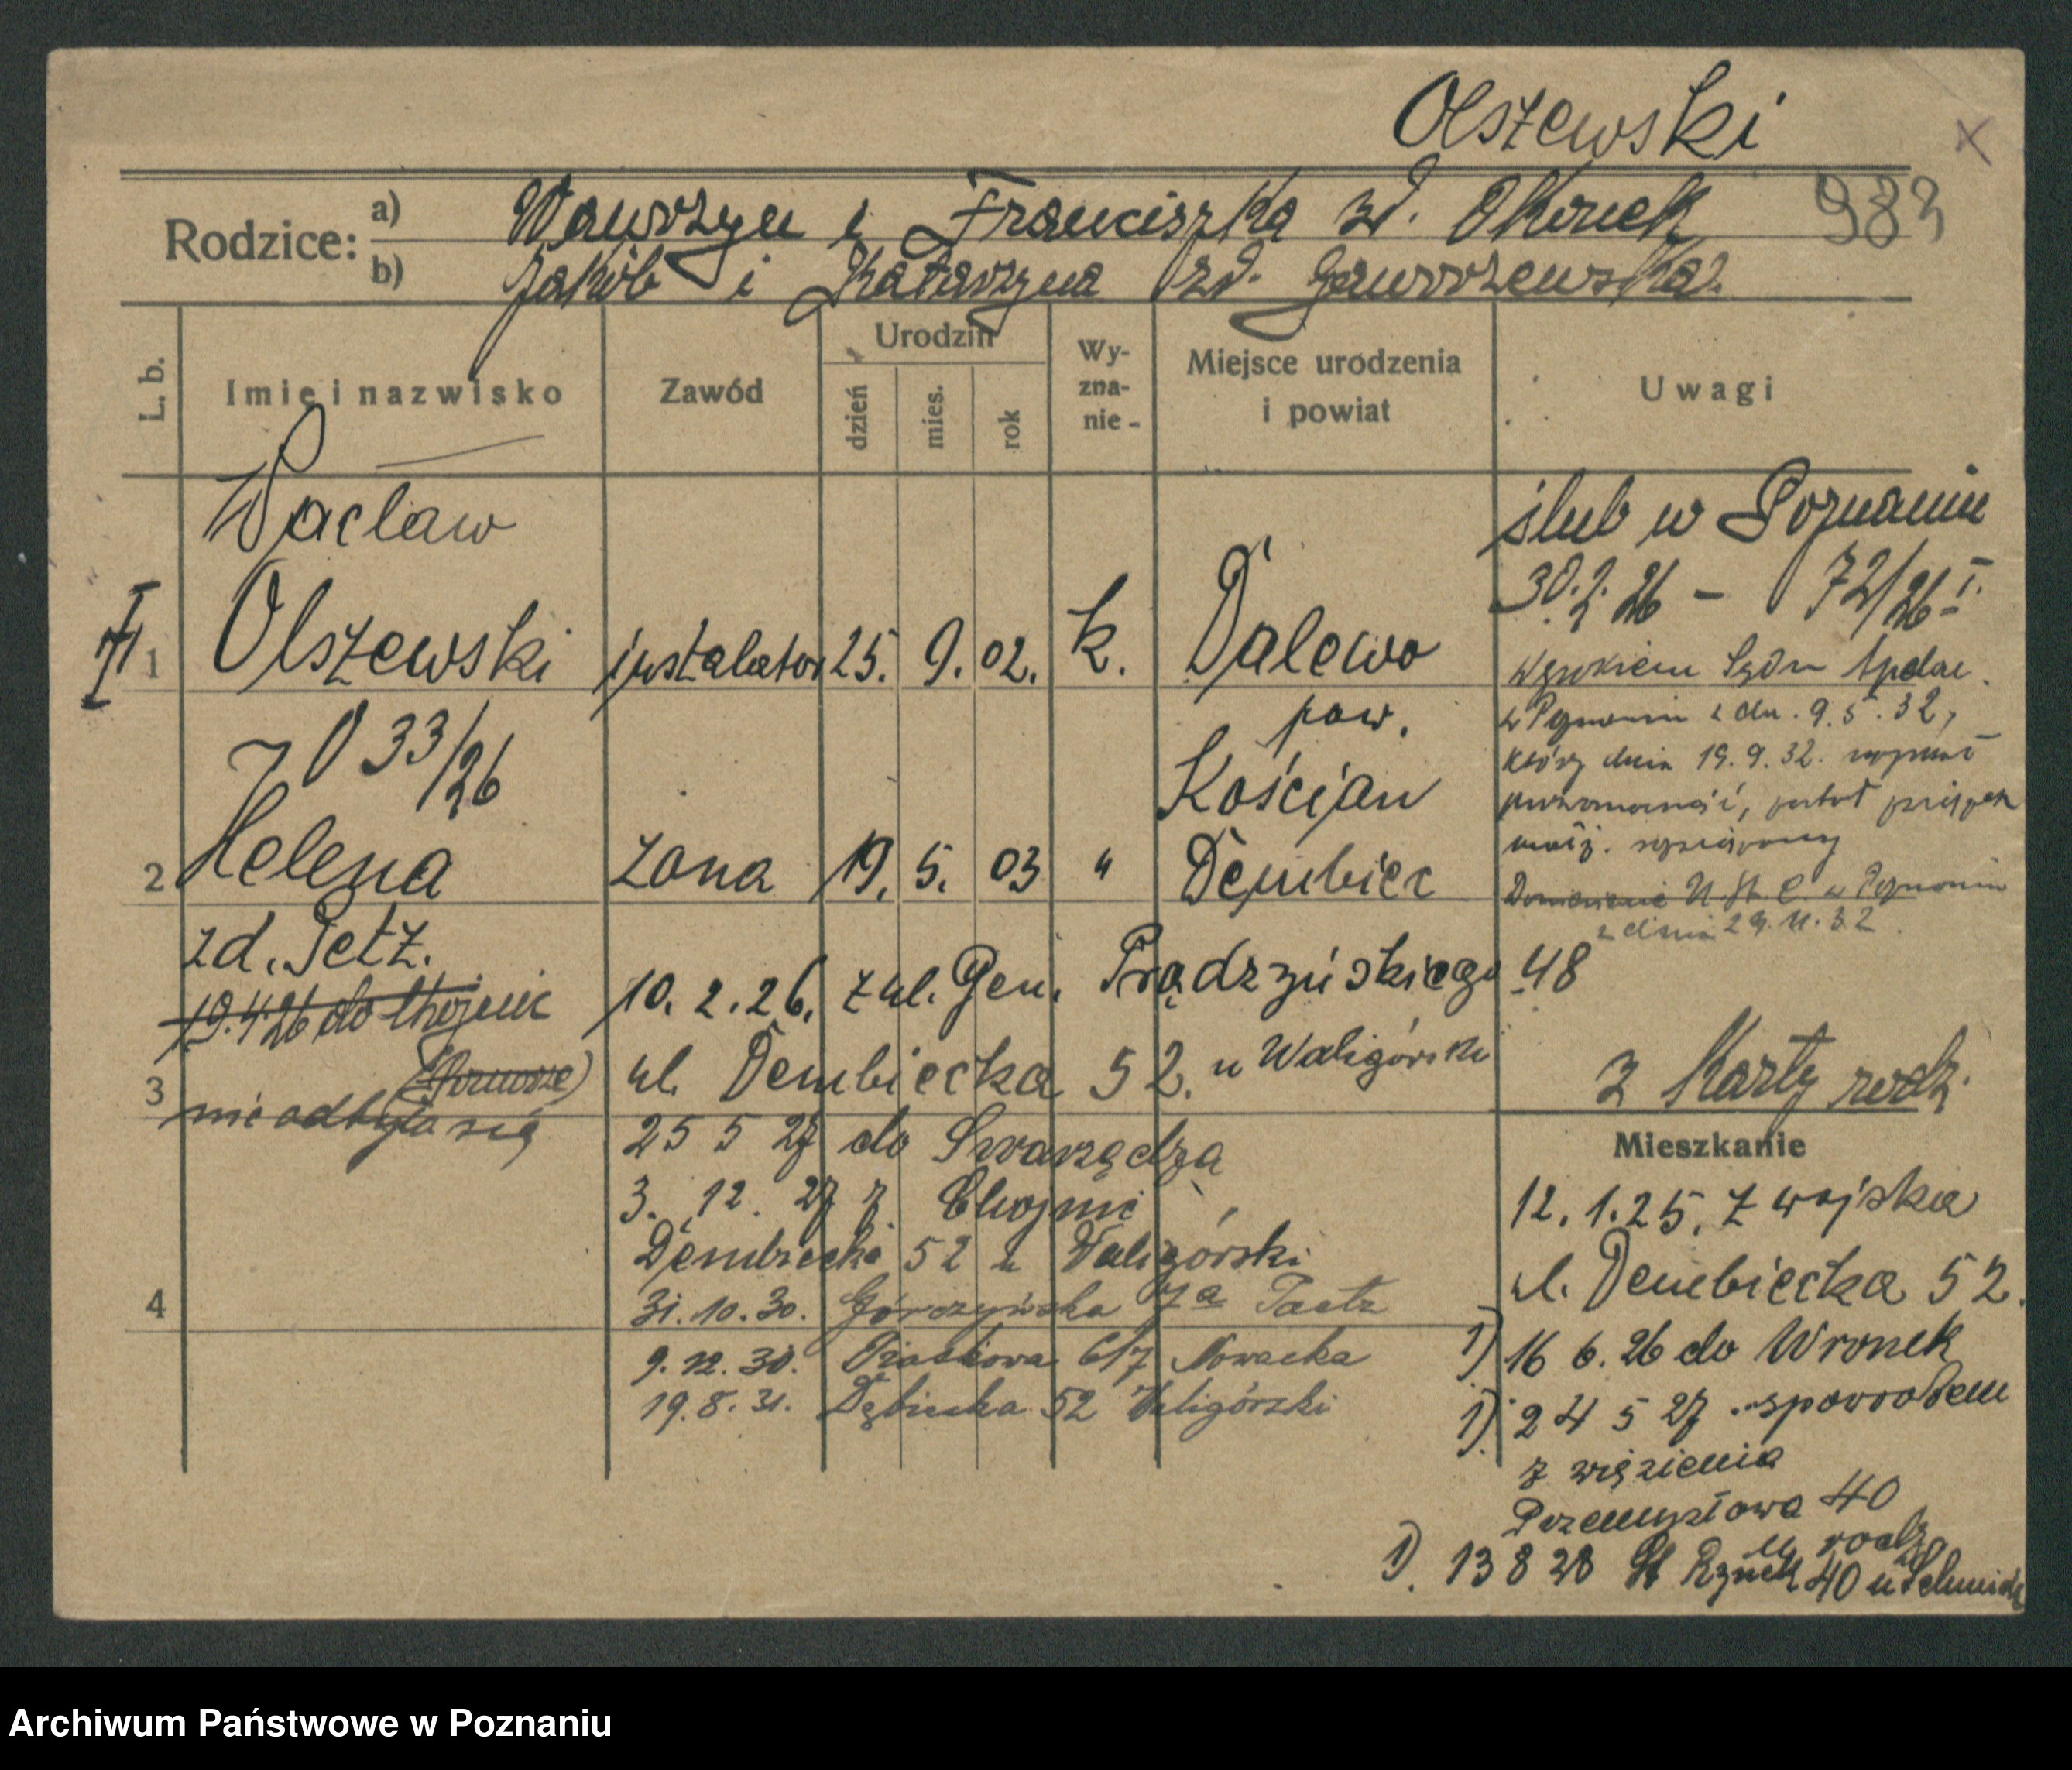 Olszewski
x
983
Rodzice:
a) Wawrzyn i Franciszka zd. Okonek
b) Jakób i Katarzyna zd. Gawrzewska
L. b.
Imię i nazwisko
Zawód
Urodzin
dzień
mies.
rok
Wy-
zna-
nie -
Miejsce urodzenia
i powiat
Uwagi
1
Wacław
Olszewski
instalator
25. 9. 02.
k.
Dalewo
pow.
Kościan
ślub w Poznaniu
30. 2. 26 - 72/26 I.
Wyrokiem Sądu Apelac.
w Poznaniu z dn. 9. 5. 32,
który dnia 19. 9. 32.
został
małż.
w Poznaniu
z dnia 29. 11. 32.
33/26
2
Helena
zd. Petz.
żona
19. 5. 03
"
Dembiec
19.4.26 do Chojnic
3
nie odbyła się
10. 2. 26. z ul. Gen. Prądzyńskiego 48
ul. Dembiecka 52. u Waligórski
25 5 27 do Swarzędza
3. 12. 27 z Chojnic
Dembiecka 52 u Waligórski
4
31. 10. 30. Górczyńska 7a Paetz
9. 12. 30. Piaskowa 6/7 Nowacka
19. 8. 31. Dębiecka 52 Waligórski
2 Karty rodz.
Mieszkanie
12. 1. 25. z wojska
ul. Dembiecka 52.
1) 16 6. 26 do Wronek
1) 24 5 27 spowrotem
z więzienia
Przemysłowa 40
u rodz.
1). 13 8 28 St Rynek 40 u Schmidt
Archiwum Państwowe w Poznaniu